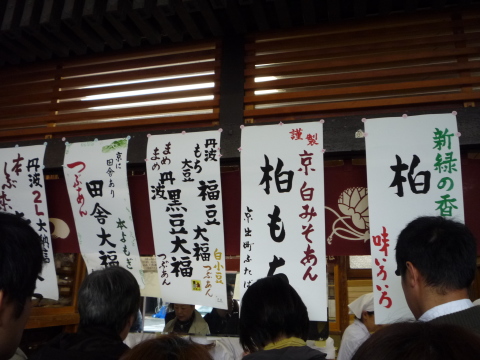 新緑の香
柏
味いろいろ
謹製
京白みそあん
柏もち
京出町ふたば
丹波
もち大豆
福豆大福
白小豆
つぶあん
まめまめ
丹波黒豆大福
つぶあん
京に
田舎あり
田舎大福
本よもぎ
つぶあん
丹波
2L大納言